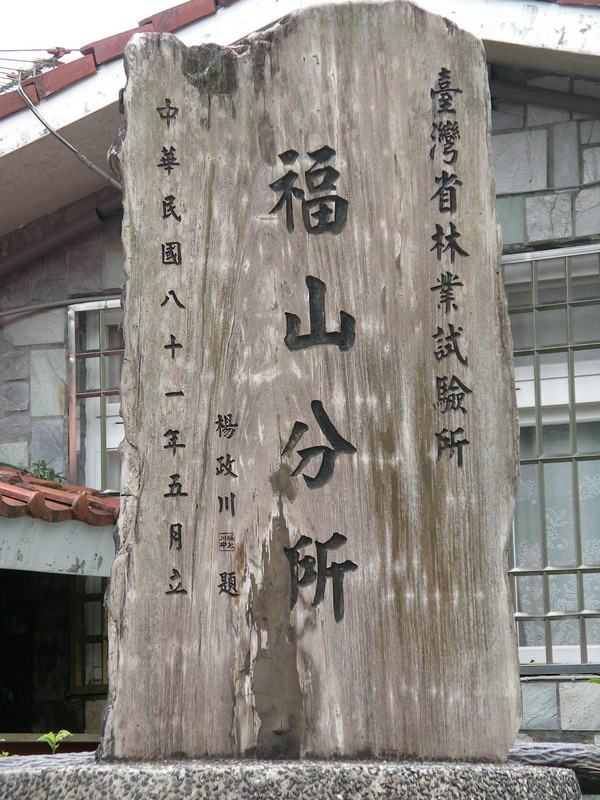 臺灣省林業試驗所
福山分所
楊政川題
中華民國八十一年五月立